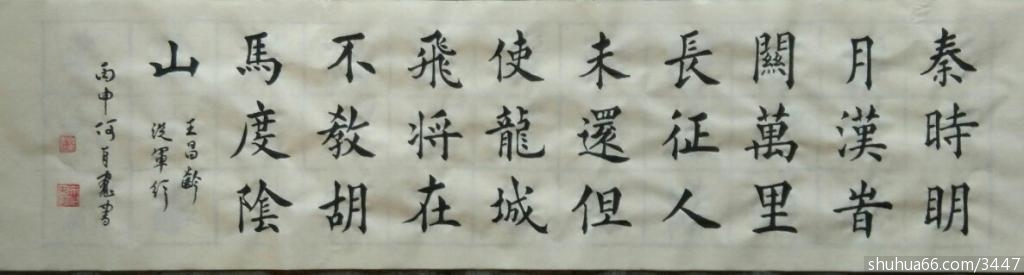 秦時明
月漢旹
關萬里
長征人
未還但
使龍城
飛将在
不教胡
馬度陰
山
王昌齡
從軍行
丙申何書
shuhua66.com/3447